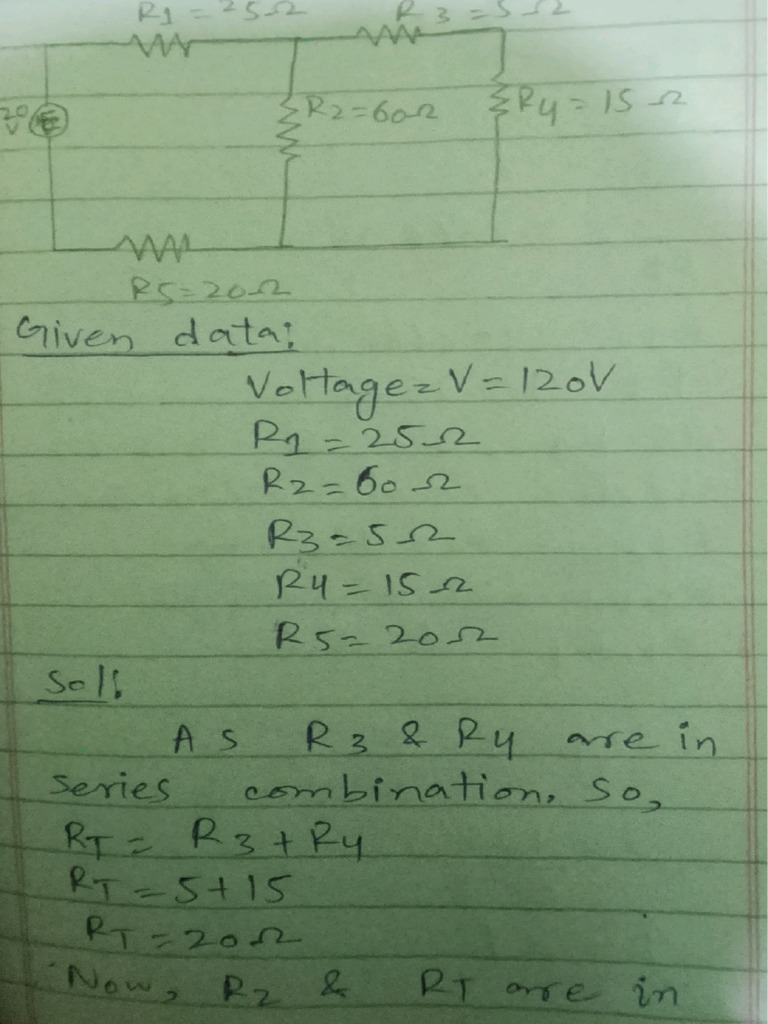 R1 = 25Ω R3 = 5Ω
R2=60Ω R4 = 15Ω
V
R5=20Ω
Given data:
Voltage=V=120V
R1 = 25Ω
R2=60Ω
R3=5Ω
R4=15Ω
R5=20Ω
Sol:
As R3 & R4 are in
series combination. So,
RT = R3+R4
RT = 5+15
RT = 20Ω
Now, R2 & RT are in